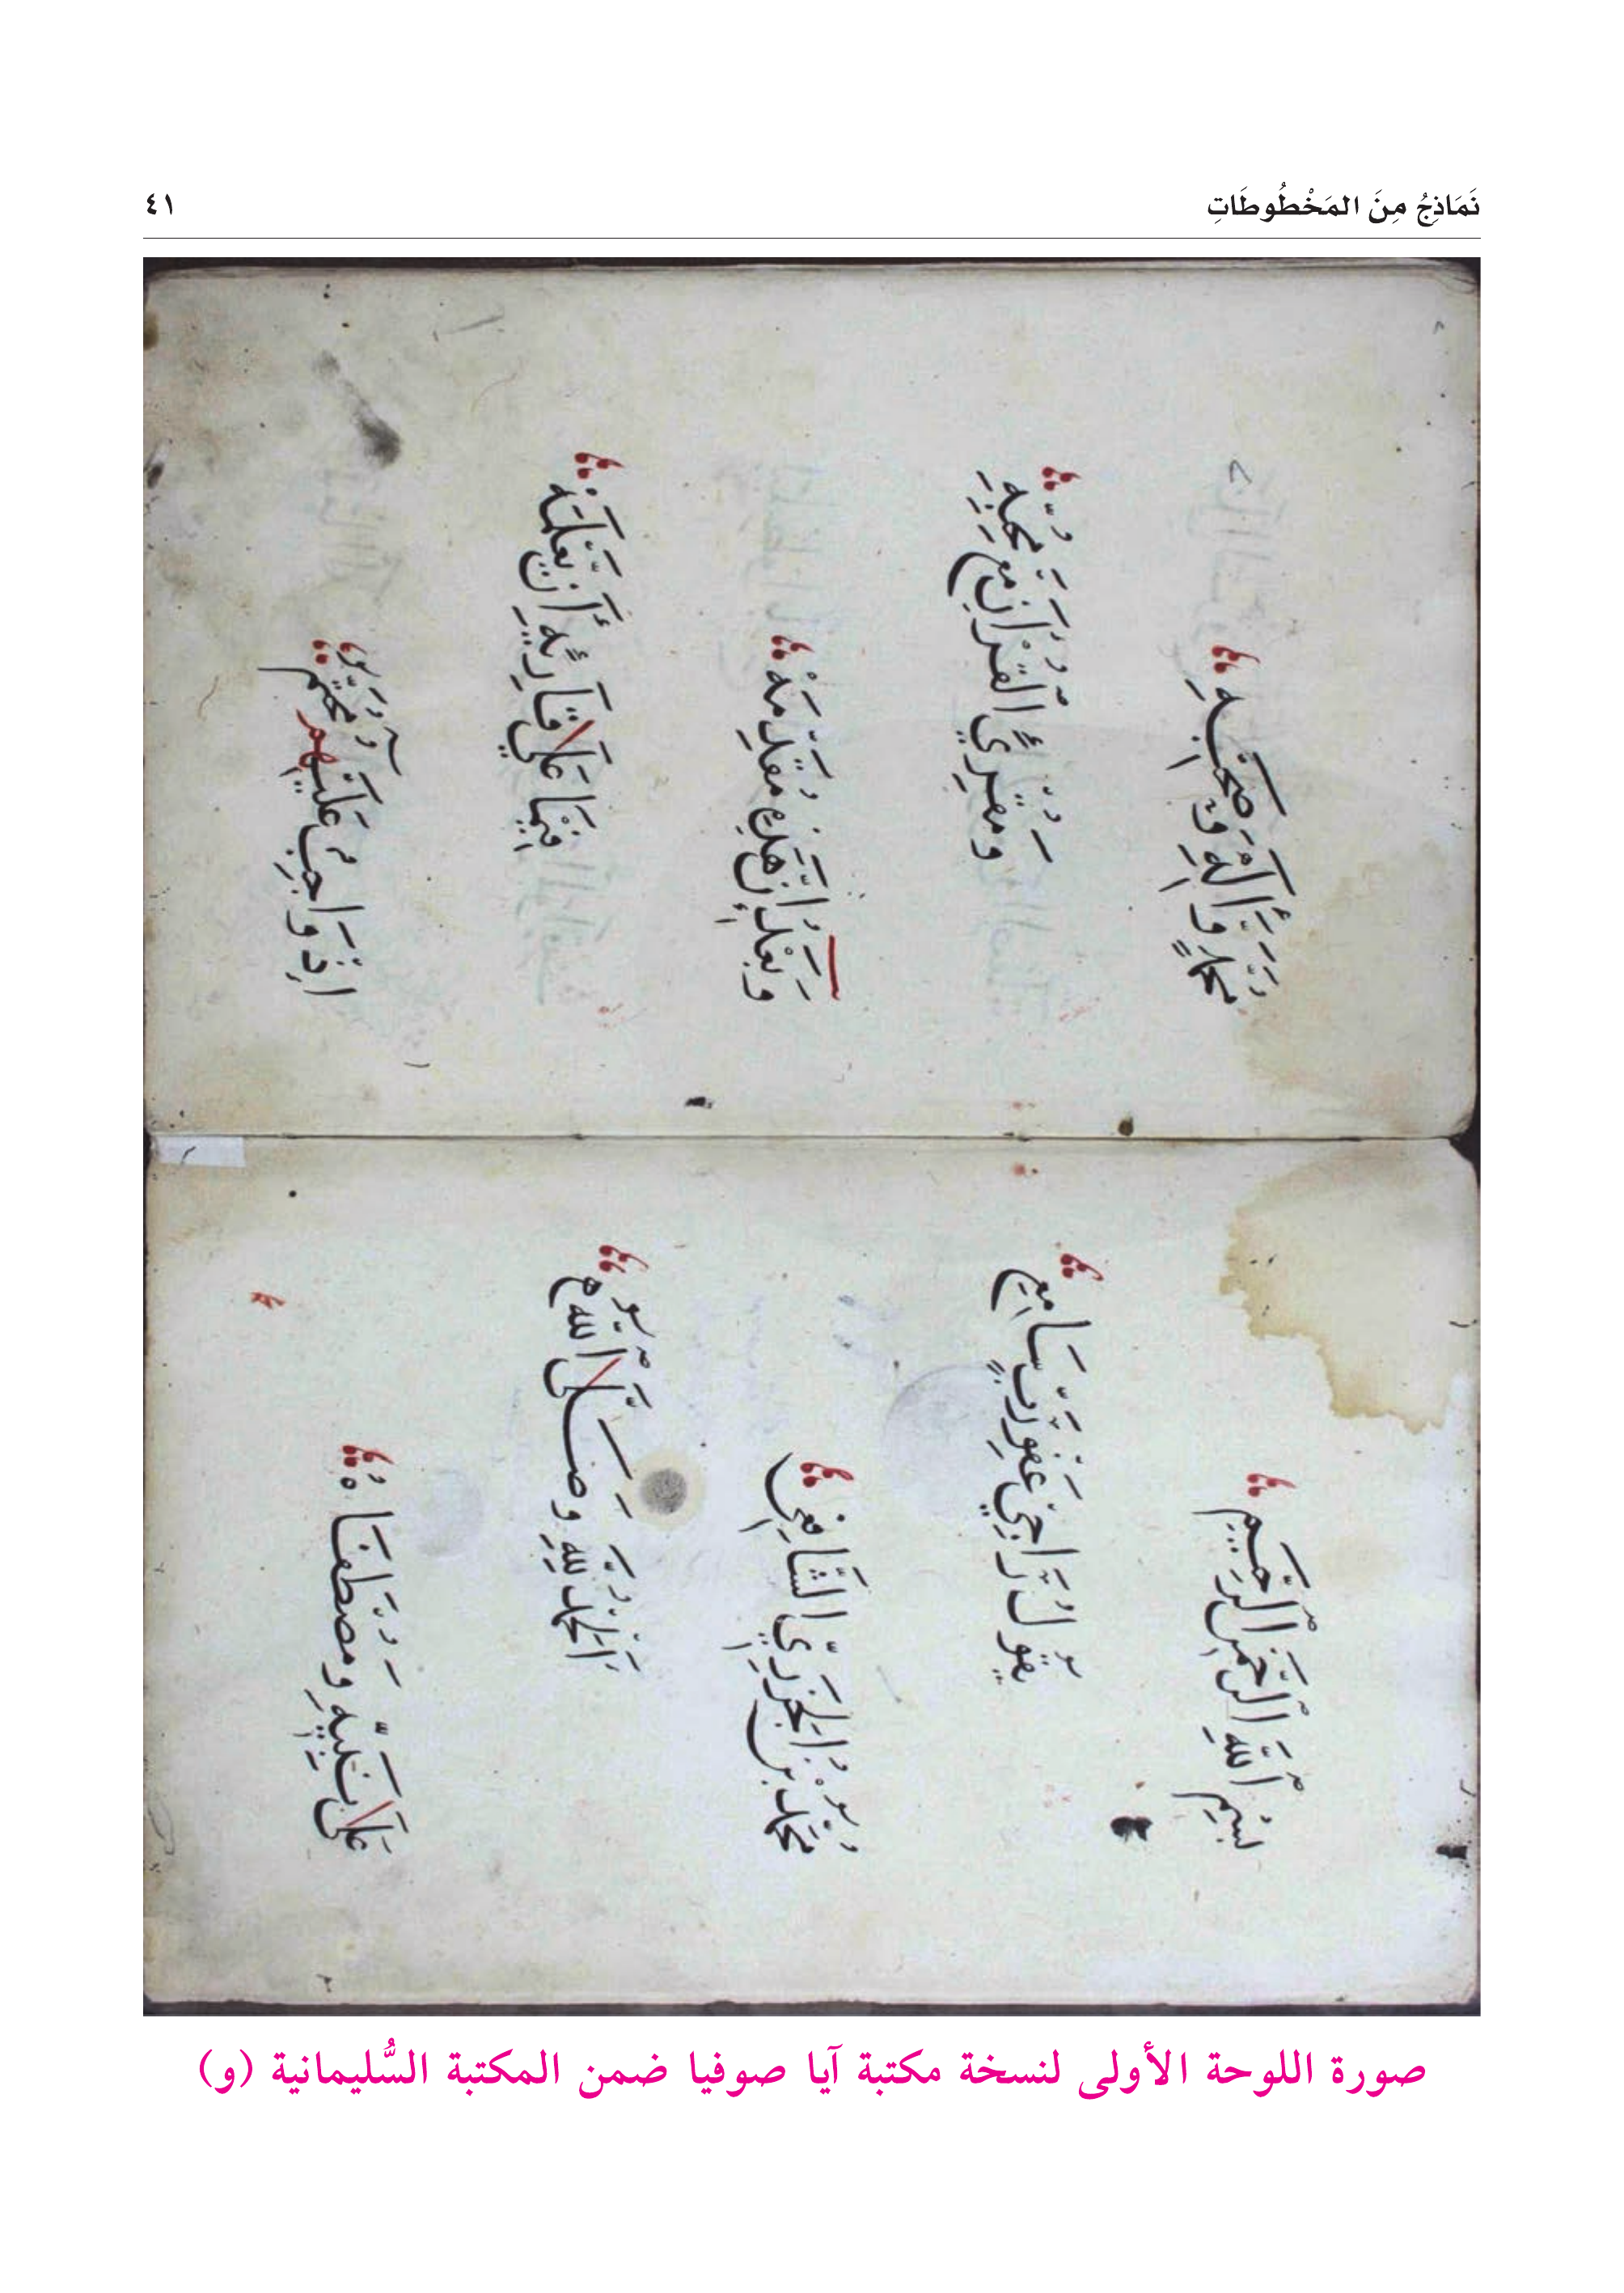 نَمَاذِجُ مِنَ المَخْطُوطَاتِ
٤١
بِسْمِ اللَّهِ الرَّحْمَنِ الرَّحِيمِ
يَقُولُ رَاجِي عَفْوِ رَبٍّ سَامِعِ
مُحَمَّدُ بْنُ الْجَزَرِيِّ الشَّافِعِي
اَلْحَمْدُ لِلَّهِ وَصَلَّى اللَّهُ
عَلَى نَبِيِّهِ وَمُصْطَفَاهُ
مُحَمَّدٍ وَآلِهِ وَصَحْبِهِ
وَمُقْرِئِ الْقُرْآنِ مَعْ مُحِبِّهِ
وَبَعْدُ إِنَّ هَذِهِ مُقَدِّمَهْ
فِيمَا عَلَى قَارِئِهِ أَنْ يَعْلَمَهْ
إِذْ وَاجِبٌ عَلَيْهِمُ مُحَتَّمُ
صورة اللوحة الأولى لنسخة مكتبة آيا صوفيا ضمن المكتبة السُّليمانية (و)